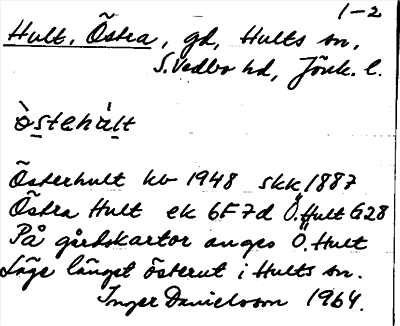 1-2
Hult, Östra, gd, Hults sn,
S. Vedbo hd, Jönk. l.
òstehált
Österhult kv 1948 skk 1887
Östra Hult ek 6F7d Ö. Hult G28
På gårdskartor anges Ö. Hult
Läge längst österut i Hults sn.
Inger Danielsson 1964.